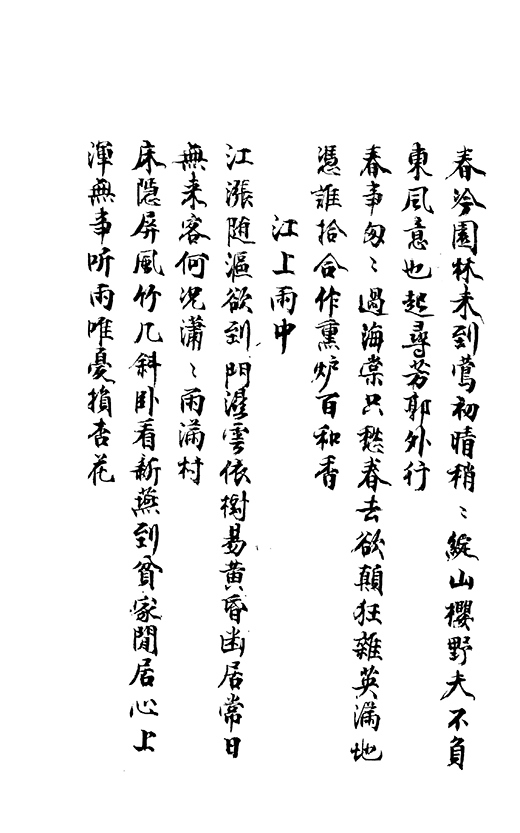 春冷園林未到鶯初晴稍〻綻山櫻野夫不負
東風意也起尋芳郭外行
春事匆〻過海棠只愁春去欲顛狂雜英滿地
憑誰拾合作熏炉百和香
江上雨中
江漲随漚欲到門溼雲依樹易黄昏幽居常日
無来客何况瀟〻雨滿村
床隠屏風竹几斜卧看新燕到貧家閒居心上
渾無事听雨唯憂損杏花